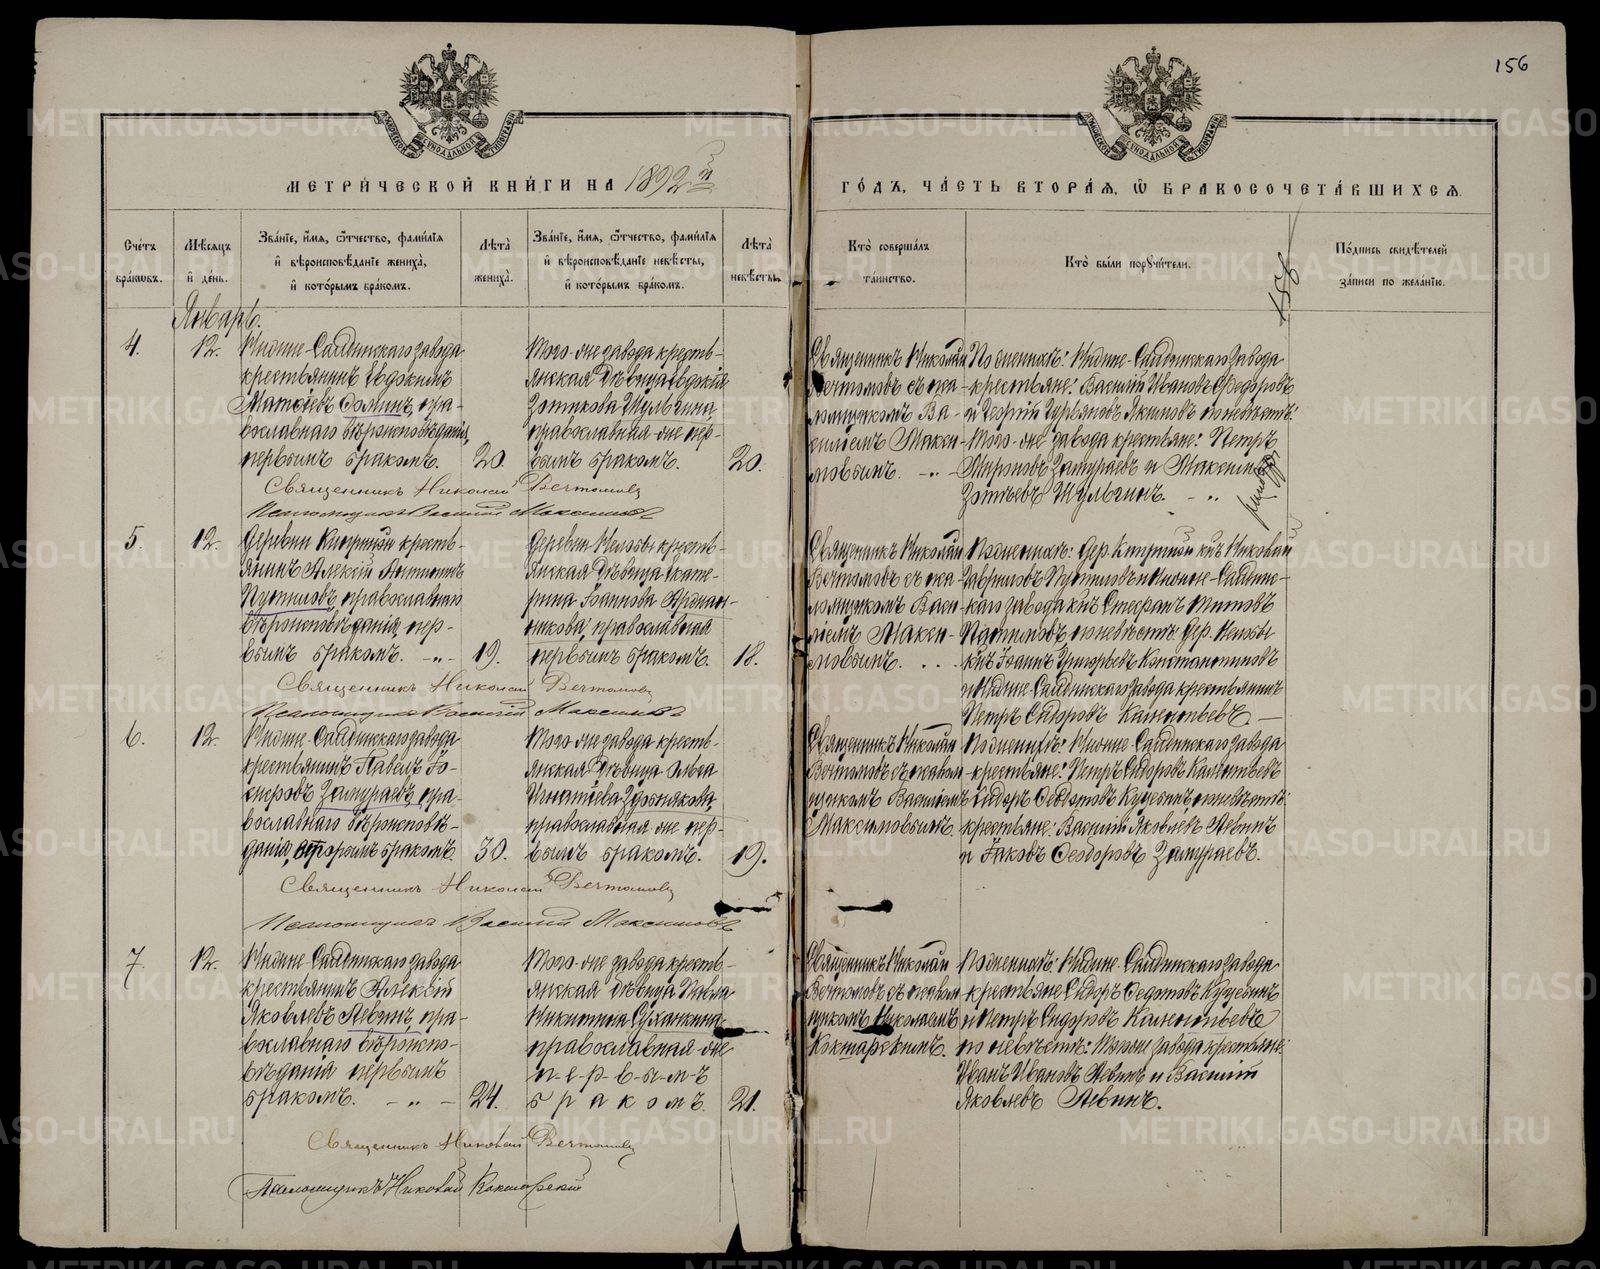 156
МЕТРИЧЕСКОЙ КНИГИ НА 1892й
ГОДЪ, ЧАСТЬ ВТОРАЯ, Ѿ БРАКОСОЧЕТАВШИХСЯ.
Счетъ браковъ.
Мѣсяцъ и день.
Званіе, имя, отчество, фамилія
и вѣроисповѣданіе жениха,
и которымъ бракомъ.
Лѣта жениха.
Званіе, имя, отчество, фамилія
и вѣроисповѣданіе невѣсты,
и которымъ бракомъ.
Лѣта невѣсты.
Кто совершалъ
таинство.
Кто были поручители.
156
Подпись свидѣтелей
записи по желанію.
Январь.
4.
12.
Нижне-Салдинскаго завода
крестьянинъ Евдокимъ
Матѳіевъ Ѳоминъ, пра-
вославнаго вѣроисповѣданія,
первымъ бракомъ.
20.
Того-же завода кресть-
янская дѣвица Евдокія
Зотикова Шульгина,
православная-же пер-
вымъ бракомъ.
20.
Священникъ Николай
Вечтомовъ съ пса-
ломщикомъ Ва-
силіемъ Макси-
мовымъ. -"-
По женихѣ: Нижне-Салдинскаго завода
крестьяне: Василій Ивановъ Ѳедоровъ
и Георгій Гурьяновъ Якимовъ по невѣстѣ:
Того-же завода крестьяне: Петръ
Мироновъ Замураевъ и Максимъ
Зотѣевъ Шульгинъ. -"
Священникъ Николай Вечтомовъ
Псаломщикъ Василій Максимовъ
5.
12.
Деревни Киприной кресть-
янинъ Алексій
Путиловъ, православнаго
вѣроисповѣданія, пер-
вымъ бракомъ. -"-
19.
Деревни Нелобы кресть-
янская дѣвица Екате-
рина Іоаннова
православная
первымъ бракомъ.
18.
Священникъ Николай
Вечтомовъ съ пса-
ломщикомъ Васи-
ліемъ Макси-
мовымъ. . . .
По женихѣ: Дер. Киприной кнъ Николай
Гавриловъ Путиловъ и Нижне-Салдинс-
каго завода кнъ Стефанъ Титовъ
Путиловъ по невѣстѣ: Дер. Нелобы
кнъ Іоаннъ Григорьевъ Константиновъ
и Нижне-Салдинскаго завода крестьянинъ
Петръ Сидоровъ Калентьевъ. —
Священникъ Николай Вечтомовъ
Псаломщикъ Василій Максимовъ
6.
12.
Нижне-Салдинскаго завода
крестьянинъ Павелъ Іо-
сифовъ Замураевъ, пра-
вославнаго вѣроисповѣ-
данія, вторымъ бракомъ.
30.
Того-же завода кресть-
янская дѣвица Ольга
Игнатіева
православная-же пер-
вымъ бракомъ.
19.
Священникъ Николай
Вечтомовъ съ псалом-
щикомъ Василіемъ
Максимовымъ.
По женихѣ: Нижне-Салдинскаго завода
крестьяне: Петръ Сидоровъ Калентьевъ
Сидоръ Ѳедотовъ Куцебинъ по невѣстѣ:
крестьяне: Василій Яковлевъ Левинъ
и Іаковъ Ѳеодоровъ Замураевъ.
Священникъ Николай Вечтомовъ
Псаломщикъ Василій Максимовъ
7.
12.
Нижне-Салдинскаго завода
крестьянинъ Алексій
Яковлевъ Левинъ, пра-
вославнаго вѣроиспо-
вѣданія первымъ
бракомъ. -"-
24.
Того-же завода кресть-
янская дѣвица Павла
Никитина Суханкина
православная-же
п-е-р-в-ы-м-ъ
б р а к о м ъ.
21.
Священникъ Николай
Вечтомовъ съ псалом-
щикомъ Николаемъ
Кокшарскимъ.
По женихѣ: Нижне-Салдинскаго завода
крестьяне Сидоръ Ѳедотовъ Куцебинъ
и Петръ Сидоровъ Калентьевъ
по невѣстѣ: Того-же завода крестьяне:
Иванъ Ивановъ Левинъ и Василій
Яковлевъ Левинъ.
Священникъ Николай Вечтомовъ
Псаломщикъ Николай Кокшарскій
METRIKI.GASO-URAL.RU